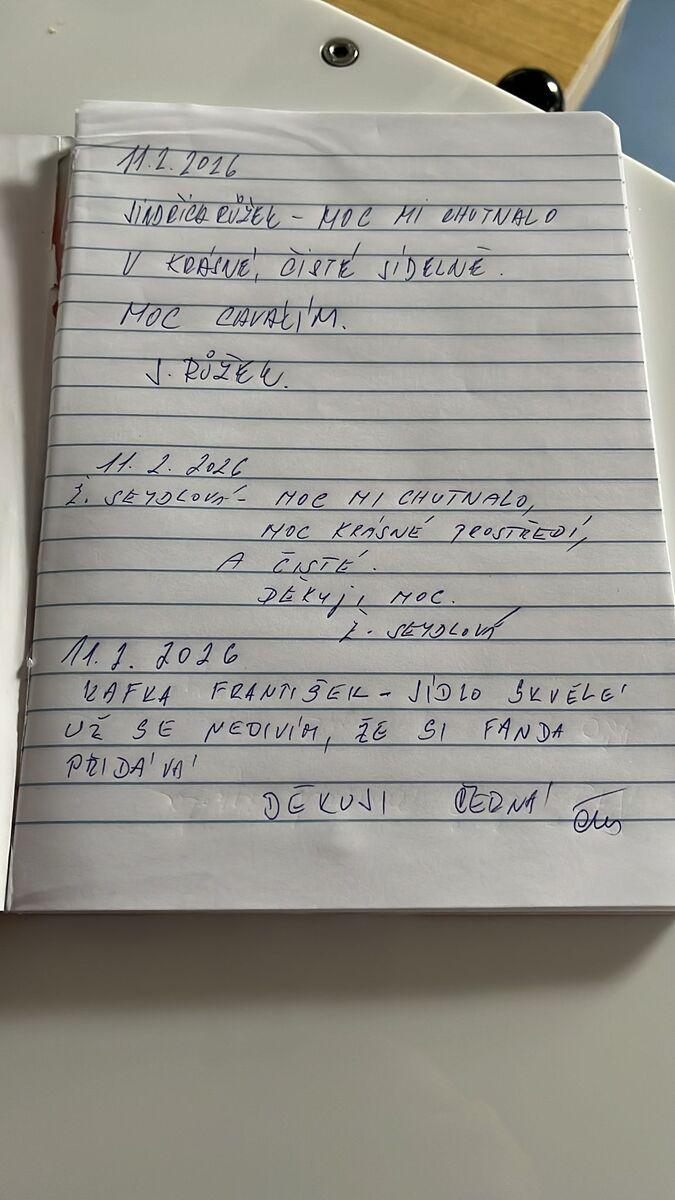 11.2.2026
JINDŘICH RŮŽEK - MOC MI CHUTNALO
V KRÁSNÉ, ČISTÉ JÍDELNĚ.
MOC CHVÁLÍM.
J. RŮŽEK.
11. 2. 2026
Ž. SEYDLOVÁ - MOC MI CHUTNALO,
MOC KRÁSNÉ PROSTŘEDÍ,
A ČISTÉ.
DĚKUJI MOC.
Ž. SEYDLOVÁ
11.2. 2026
KAFKA FRANTIŠEK - JÍDLO SKVĚLÉ
UŽ SE NEDIVÍM, ŽE SI FANDA
PŘIDÁVÁ
DĚKUJI ČERNÁ